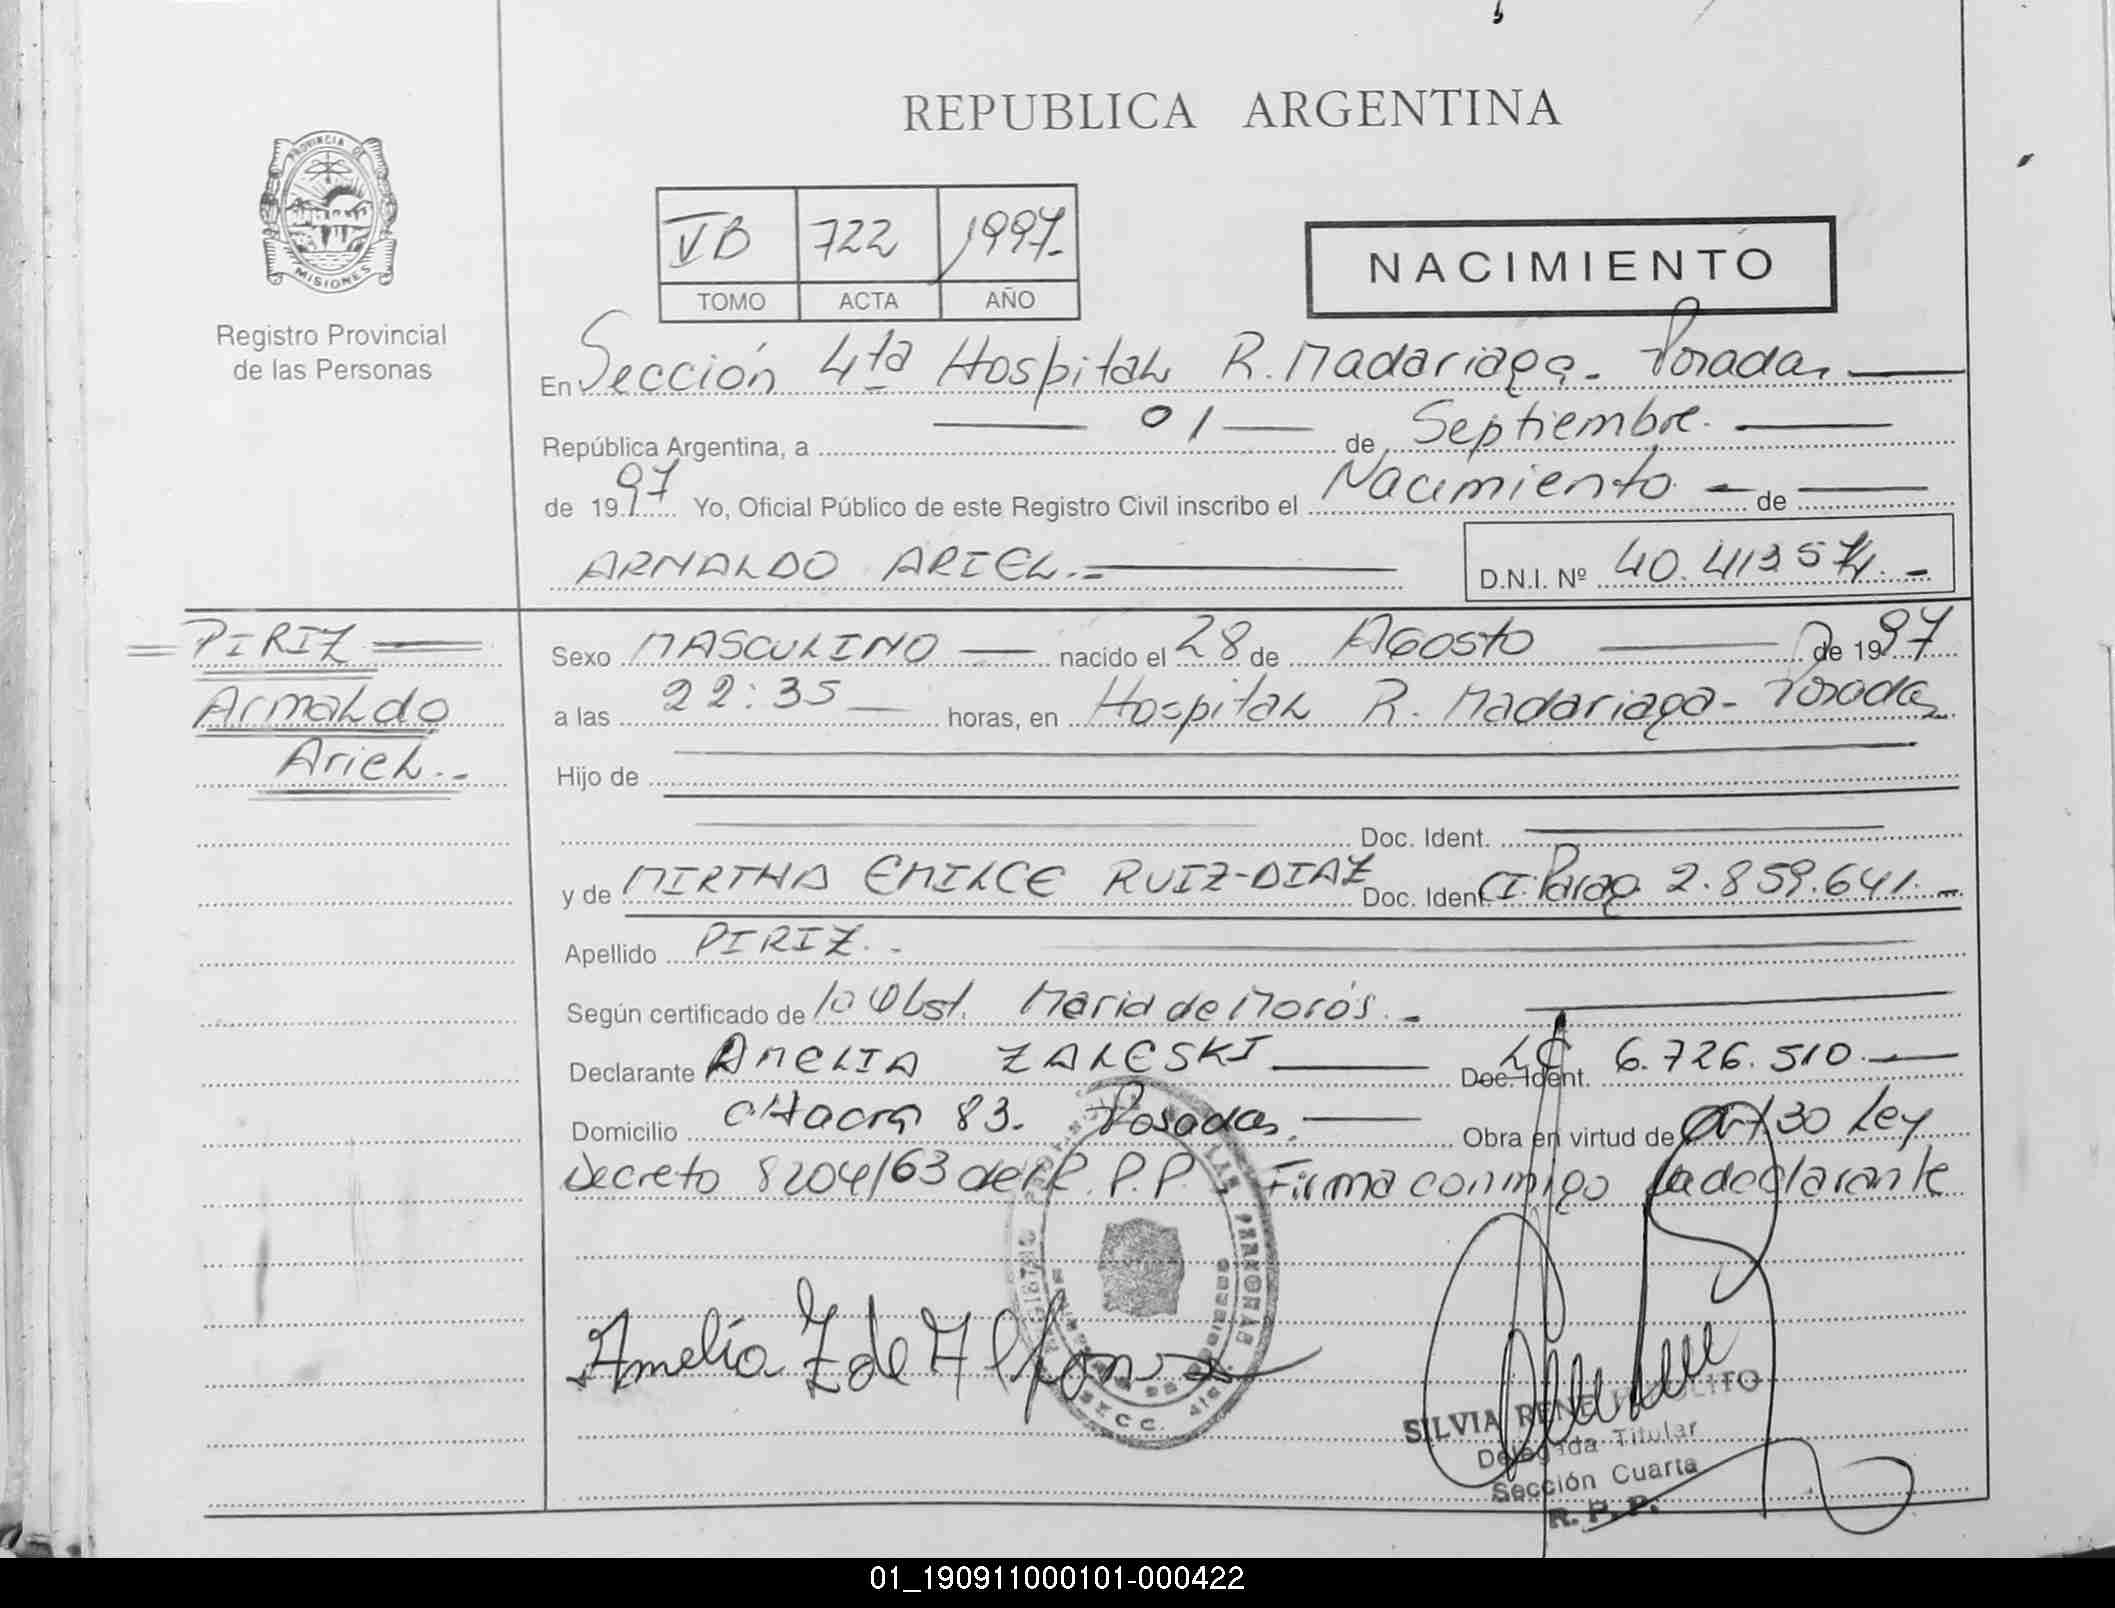 REPUBLICA ARGENTINA
PROVINCIA DE
MISIONES
Registro Provincial
de las Personas
VB 722 1997.-
TOMO ACTA AÑO
NACIMIENTO
En Sección 4ta Hospital R. Madariaga - Posadas
República Argentina, a 01 de Septiembre.
de 1997 Yo, Oficial Público de este Registro Civil inscribo el Nacimiento - de
ARNALDO ARIEL.-
D.N.I. Nº 40.413.574.-
PIRIZ
Arnaldo
Ariel.-
Sexo MASCULINO nacido el 28 de Agosto de 1997
a las 22:35 horas, en Hospital R. Madariaga - Posadas
Hijo de
Doc. Ident.
y de MIRTHA EMILCE RUIZ-DIAZ Doc. Ident. CI. Parag. 2.859.641.-
Apellido PIRIZ.-
Según certificado de la Obst. Maria de Morós.-
Declarante AMELIA ZALESKI Doc. Ident. LC 6.726.510.-
Domicilio CHacra 83. Posadas. Obra en virtud de art 30 Ley
Decreto 8204/63 del R.P.P. Firma conmigo la declarante
Amelia Z de Alfonzo
SILVIA RENE
Delegada Titular
Sección Cuarta
R. P. P.
01_190911000101-000422